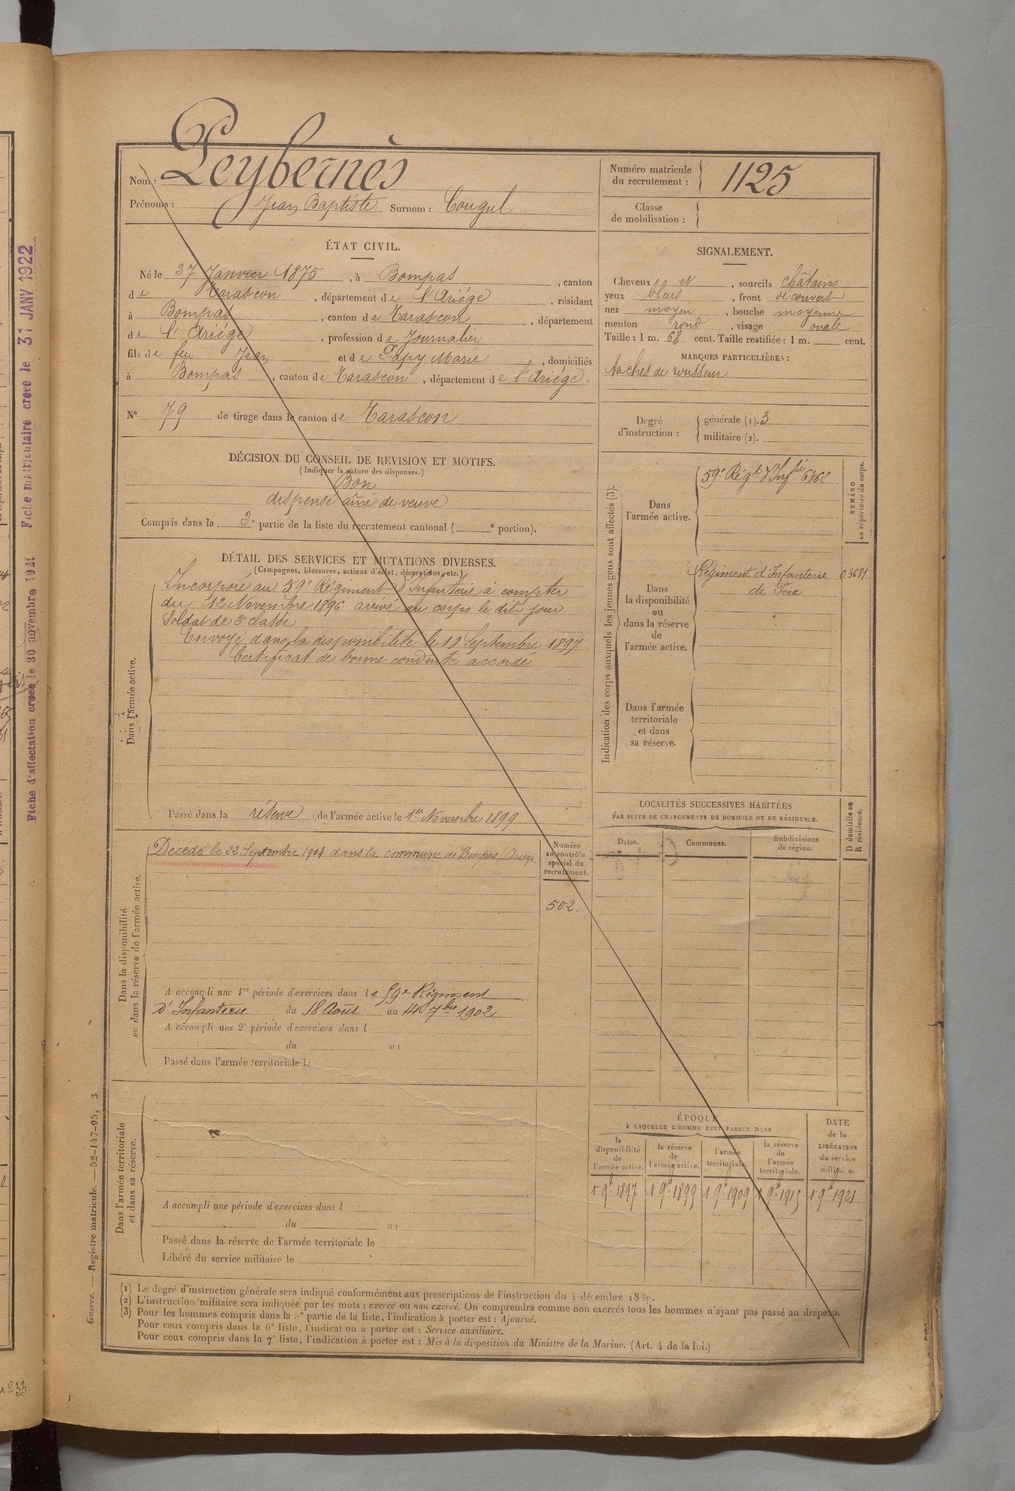 Peybernès
Nom :
Prénoms : Jean Baptiste Surnom : Cougul
Numéro matricule du recrutement : 1125
Classe de mobilisation :
ÉTAT CIVIL.
Né le 27 Janvier 1875, à Bompas, canton
de Tarascon, département de l'Ariège, résidant
à Bompas, canton de Tarascon, département
de l'Ariège, profession de Journalier
fils de feu Jean et de Papy Marie, domiciliés
à Bompas, canton de Tarascon, département de l'Ariège.
N° 79 de tirage dans le canton de Tarascon
SIGNALEMENT.
Cheveux et, sourcils châtains
yeux bleus, front découvert
nez moyen, bouche moyenne
menton rond, visage ovale
Taille : 1 m. 68 cent. Taille rectifiée : 1 m. cent.
MARQUES PARTICULIÈRES :
taches de rousseur
Degré d'instruction : générale (1). 3
militaire (2).
DÉCISION DU CONSEIL DE REVISION ET MOTIFS.
(Indiquer la nature des dispenses.)
Bon
dispensé aîné de veuve
Compris dans la 2e partie de la liste du recrutement cantonal ( e portion).
DÉTAIL DES SERVICES ET MUTATIONS DIVERSES.
(Campagnes, blessures, actions d'éclat, décorations, etc.)
Dans l'armée active.
Incorporé au 59e Régiment d'Infanterie à compter
du 12 Novembre 1896 arrivé au corps le dit jour
Soldat de 2e classe
Envoyé dans la disponibilité le 18 Septembre 1897
Certificat de bonne conduite accordé
Passé dans la réserve de l'armée active le 1er Novembre 1899
Indication des corps auxquels les jeunes gens sont affectés (3).
NUMÉRO au répertoire du corps.
Dans l'armée active.
59e Régt d'Infrie 6362
Dans la disponibilité ou dans la réserve de l'armée active.
Régiment d'Infanterie
de Foix
Dans l'armée territoriale et dans sa réserve.
LOCALITÉS SUCCESSIVES HABITÉES
PAR SUITE DE CHANGEMENTS DE DOMICILE OU DE RÉSIDENCE.
Dates. Communes. Subdivisions de région. D domicile ou R résidence.
Dans la disponibilité ou dans la réserve de l'armée active.
Décédé le 22 Septembre 1904 dans la commune de Bompas (Ariège
Numéro au contrôle spécial du recrutement.
502.
A accompli une 1re période d'exercices dans le 59e Régiment
d'Infanterie du 18 Août au 14 7bre 1902
A accompli une 2e période d'exercices dans l
du au
Passé dans l'armée territoriale l
Dans l'armée territoriale et dans sa réserve.
A accompli une période d'exercices dans l
du au
Passé dans la réserve de l'armée territoriale le
Libéré du service militaire le
ÉPOQUE
À LAQUELLE L'HOMME DOIT PASSER DANS
la disponibilité de l'armée active.
la réserve de l'armée active.
l'armée territoriale.
la réserve de l'armée territoriale.
DATE de la LIBÉRATION du service militaire.
(1) Le degré d'instruction générale sera indiqué conformément aux prescriptions de l'instruction du 4 décembre
(2) L'instruction militaire sera indiquée par les mots : exercé ou non exercé. On comprendra comme non exercés tous les hommes n'ayant pas passé au drapeau.
(3) Pour les hommes compris dans la 5e partie de la liste, l'indication à porter est : Ajourné.
Pour ceux compris dans la 6e liste, l'indication à porter est : Service auxiliaire.
Pour ceux compris dans la 7e liste, l'indication à porter est : Mis à la disposition du Ministre de la Marine. (Art. 4 de la loi.)
Guerre. — Registre matricule. — 52-147-95. 3
Fiche d'affectation créée le 30 novembre 1921 Fiche matriculaire créée le 31 JANV 1922